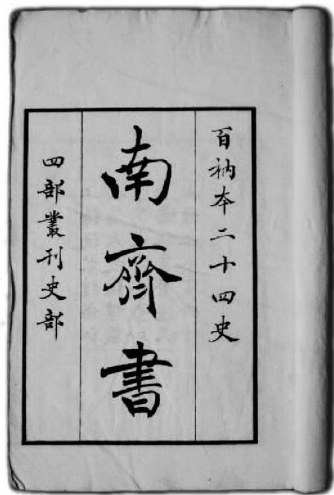 百衲本二十四史
南齊書
四部叢刊史部